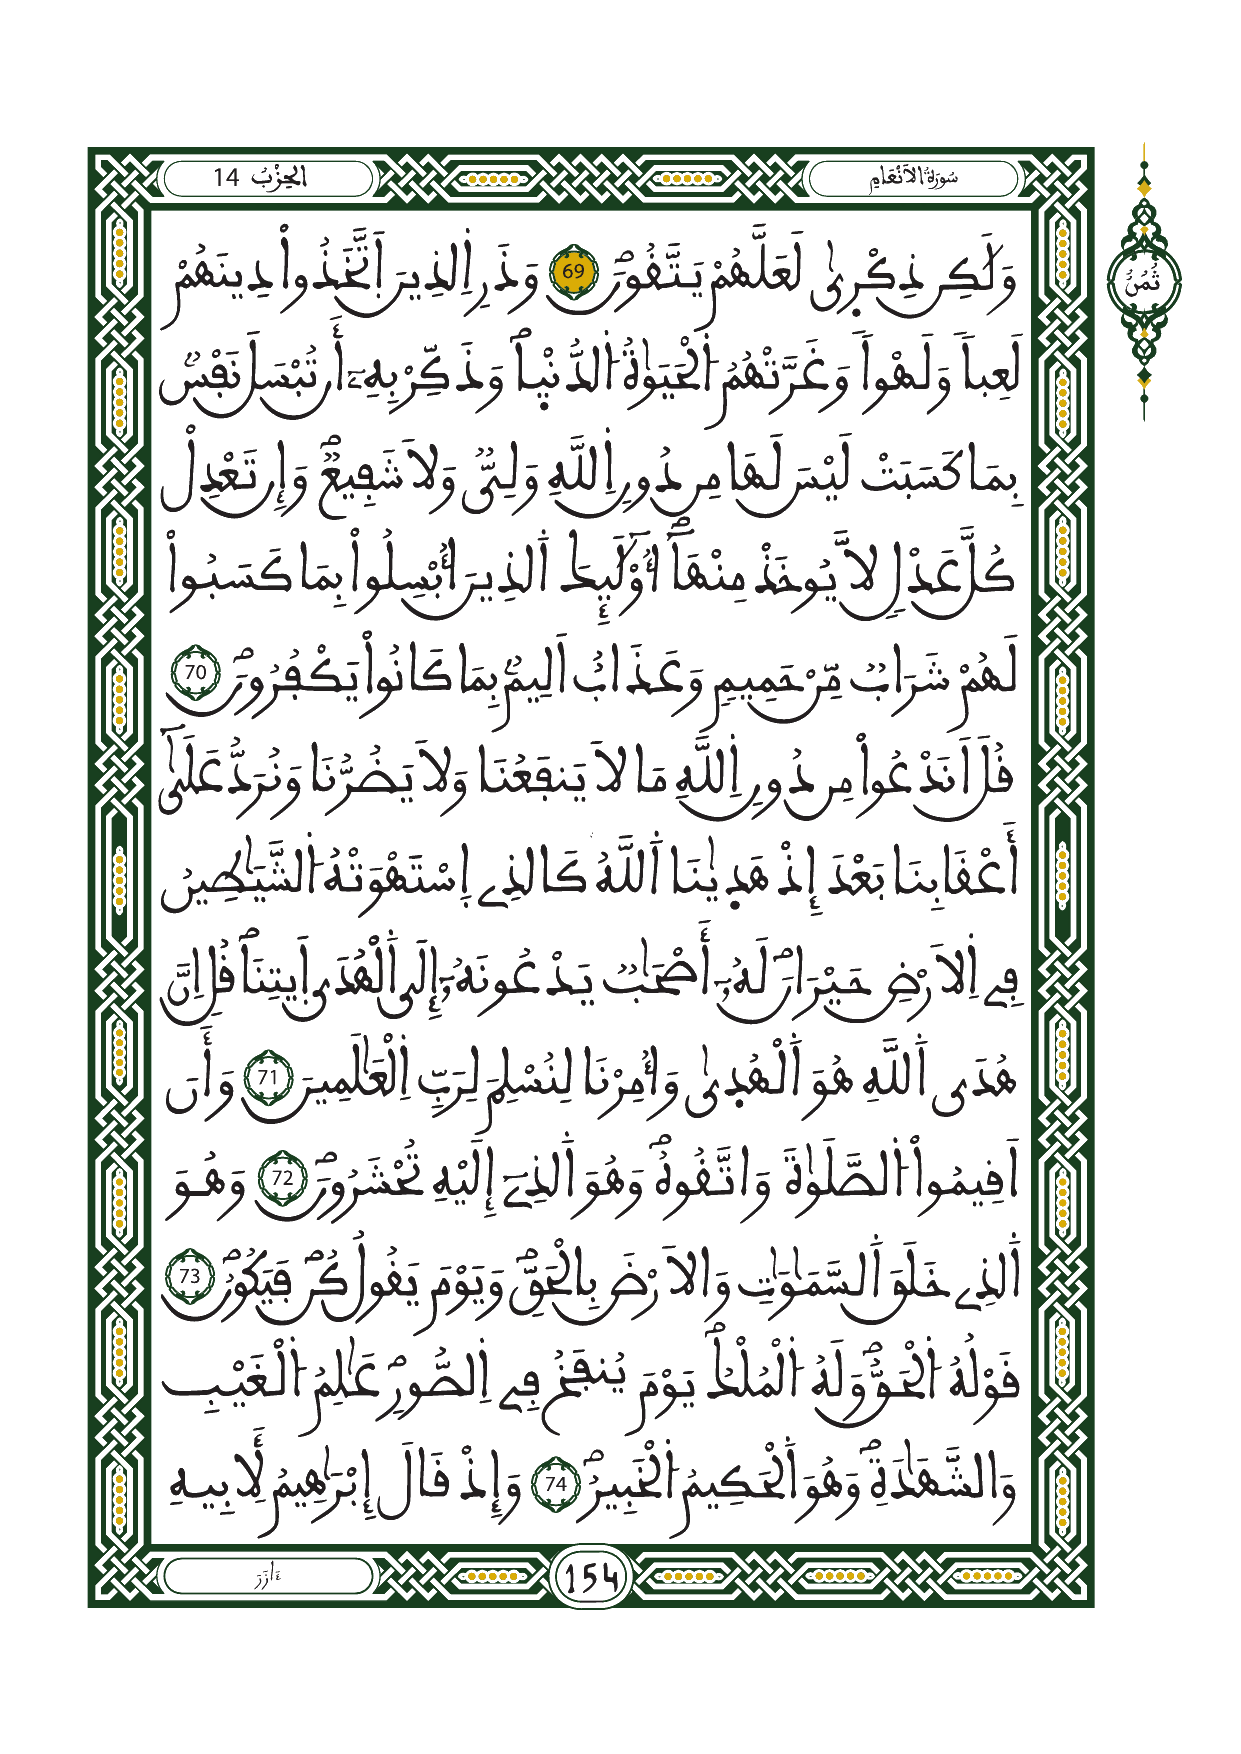 سُورَةُ الَانْعَامِ
الحِزْبُ 14
ثُمُنُ
وَلَٰكِن ذِكْر۪يٰ لَعَلَّهُمْ يَتَّقُونَۖ 69 وَذَرِ اِ۬لذِينَ اَ۪تَّخَذُواْ دِينَهُمْ
لَعِباٗ وَلَهْواٗ وَغَرَّتْهُمُ اُ۬لْحَيَوٰةُ اُ۬لدُّنْي۪اۖ وَذَكِّرْ بِهِۦٓ أَن تُبْسَلَ نَفْسُۢ
بِمَا كَسَبَتْ لَيْسَ لَهَا مِن دُونِ اِ۬للَّهِ وَلِيّٞ وَلَا شَفِيعٞۖ وَإِن تَعْدِلْ
كُلَّ عَدْلٖ لَّا يُوخَذْ مِنْهَآۖ أُوْلَٰٓئِكَ اَ۬لذِينَ أُبْسِلُواْ بِمَا كَسَبُواْ
لَهُمْ شَرَابٞ مِّنْ حَمِيمٖ وَعَذَابٌ اَلِيمُۢ بِمَا كَانُواْ يَكْفُرُونَۖ 70
قُلَ اَنَدْعُواْ مِن دُونِ اِ۬للَّهِ مَا لَا يَنفَعُنَا وَلَا يَضُرُّنَا وَنُرَدُّ عَلَيٰٓ
أَعْقَابِنَا بَعْدَ إِذْ هَد۪يٰنَا اَ۬للَّهُ كَالذِے اِ۪سْتَهْوَتْهُ اُ۬لشَّيَٰطِينُ
فِے اِ۬لَارْضِ حَيْرَانَۖ لَهُۥٓ أَصْحَٰبٞ يَدْعُونَهُۥٓ إِلَي اَ۬لْهُدَي اَ۪يتِنَاۖ قُلِ اِنَّ
هُدَي اَ۬للَّهِ هُوَ اَ۬لْهُد۪يٰ وَأُمِرْنَا لِنُسْلِمَ لِرَبِّ اِ۬لْعَٰلَمِينَ 71 وَأَنَ
اَقِيمُواْ اُ۬لصَّلَوٰةَ وَاتَّقُوهُۖ وَهُوَ اَ۬لذِےٓ إِلَيْهِ تُحْشَرُونَۖ 72 وَهُوَ
اَ۬لذِے خَلَقَ اَ۬لسَّمَٰوَٰتِ وَالَارْضَ بِالْحَقِّۖ وَيَوْمَ يَقُولُ كُنۖ فَيَكُونُۖ 73
قَوْلُهُ اُ۬لْحَقُّۖ وَلَهُ اُ۬لْمُلْكُۖ يَوْمَ يُنفَخُ فِے اِ۬لصُّورِۖ عَٰلِمُ اُ۬لْغَيْبِ
وَالشَّهَٰدَةِۖ وَهُوَ اَ۬لْحَكِيمُ اُ۬لْخَبِيرُۖ 74 وَإِذْ قَالَ إِبْرَٰهِيمُ لِأَبِيهِ
ءَازَرَ
154